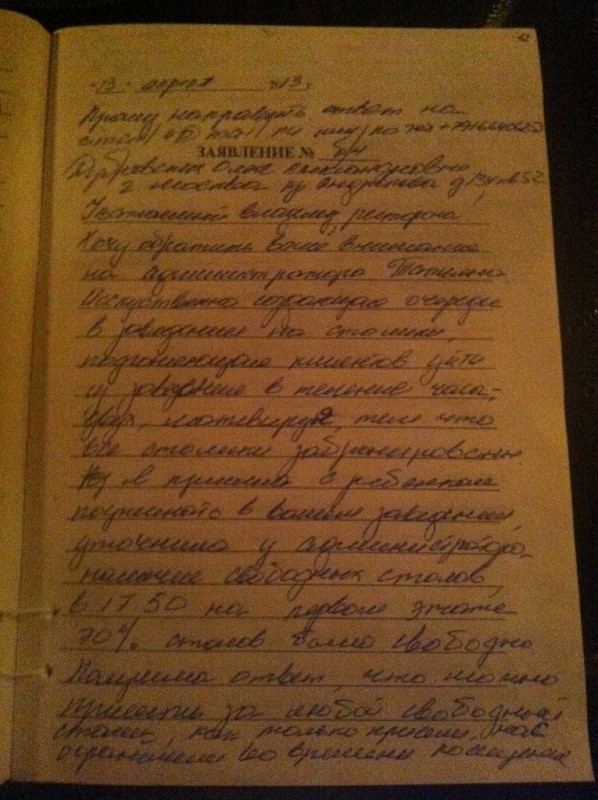 12
"13" апреля 2013 г.
Прошу направить ответ на
ЗАЯВЛЕНИЕ № б/н
Ольга Александровна
г Москва пр
Уважаемый владелец ресторана
Хочу обратить Ваше внимание
на администратора Татьяна
Искусственно создающую очередь
в заведении на столики,
клиентов уйти
из заведения в течение часа,
двух, мотивируя, тем что
все столики забронированы
Я пришла с ребенком
в вашем заведении,
уточнила у администратора,
наличие свободных столов,
в 17.50 на первом этаже
70% столов было свободно.
Получила ответ, что можно
присесть за любой свободный
столик, как только присели, нас
ограничили во времени посещения